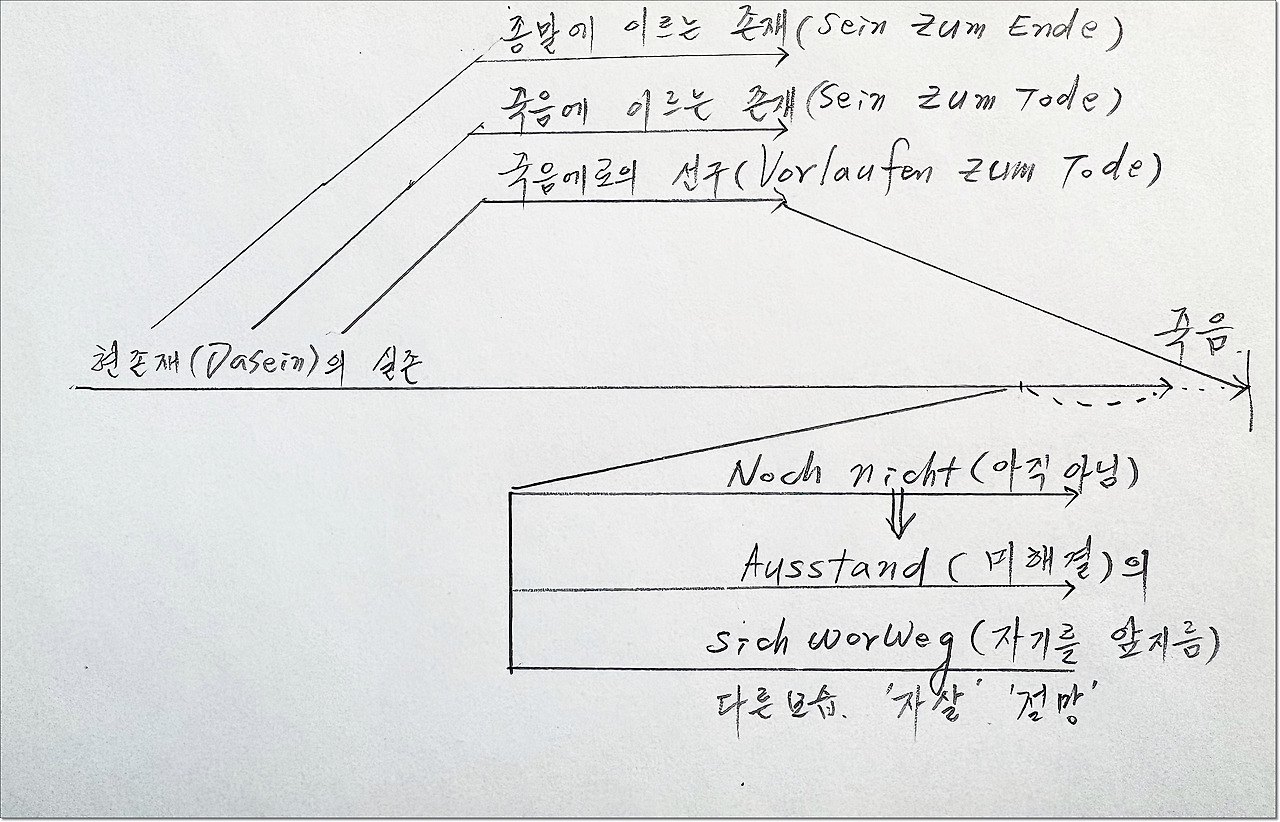 종말에 이르는 존재(Sein zum Ende)
죽음에 이르는 존재(Sein zum Tode)
죽음에로의 선구(Vorlaufen zum Tode)
죽음
현존재(Dasein)의 실존
Noch nicht(아직 아님)
Ausstand(미해결)의
sich worweg(자기를 앞지름)
다른 모습. '자살' '절망'